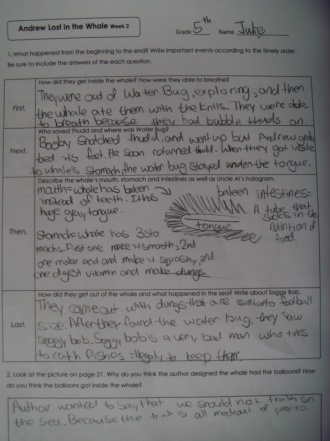 Andrew Lost in the Whale Week 2
Grade 5th Name Julie
1. What happened from the beginning to the end? Write important events according to the timely order.
Be sure to include the answers of the each question.
How did they get inside the whale? How were they able to breathe?
First,
They were out of Water Bug, exploring, and then
the whale ate them with the krills. They were able
to breath because they had bubble thuds on.
Who saved Thudd and where was Water Bug?
Next,
Booby snatched thudd, and went up but Andrew
its feet. He soon returned thudd. When they got inside
to whale's stomach, the water bug stayed under the tongue.
Describe the whale's mouth, stomach and intestines as well as Uncle Al's hologram.
Then,
mouth-whale has baleen
instead of teeth. It has
huge gray, tongue.
baleen
tongue
intestines-
A tube that
sucks in the
nutrition of
food.
Stomach-whale has 3 sto
machs. First one make it smooth, 2nd
one make acid and make it squashy, 3rd
one digest vitamin and make dungs
How did they get out of the whale and what happened in the sea? Write about Soggy Bob.
Last,
They came out with dungs that are similar to football
size. After they found the water bug, they saw
soggy bob. Soggy bob is a very, bad man who tries
to catch fishes illegally to keep them.
2. Look at the picture on page 21. Why do you think the author designed the whale had the balloons? How
do you think the balloons got inside the whale?
Author wanted to say that we should not trash on
the sea. Because the is all made out of